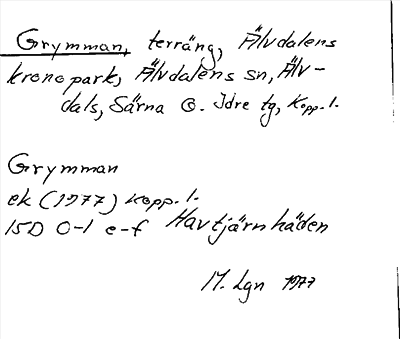 Grymman, terräng, Älvdalens
kronopark, Älvdalens sn, Älv-
dals, Särna o. Idre tg, Kopp. l.
Grymman
ek (1977) Kopp. l.
15D 0-1 e-f Havtjärnhäden
M. Lgn 1977